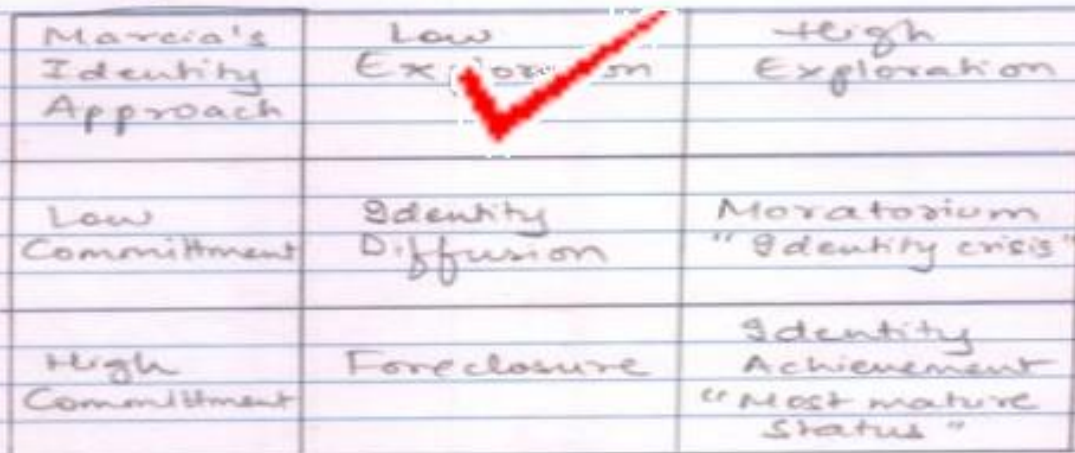 Marcia's
Identity
Approach
Low
Exploration
High
Exploration
Low
Committment
Identity
Diffusion
Moratorium
"Identity crisis"
High
Committment
Foreclosure
Identity
Achievement
"Most mature
Status"